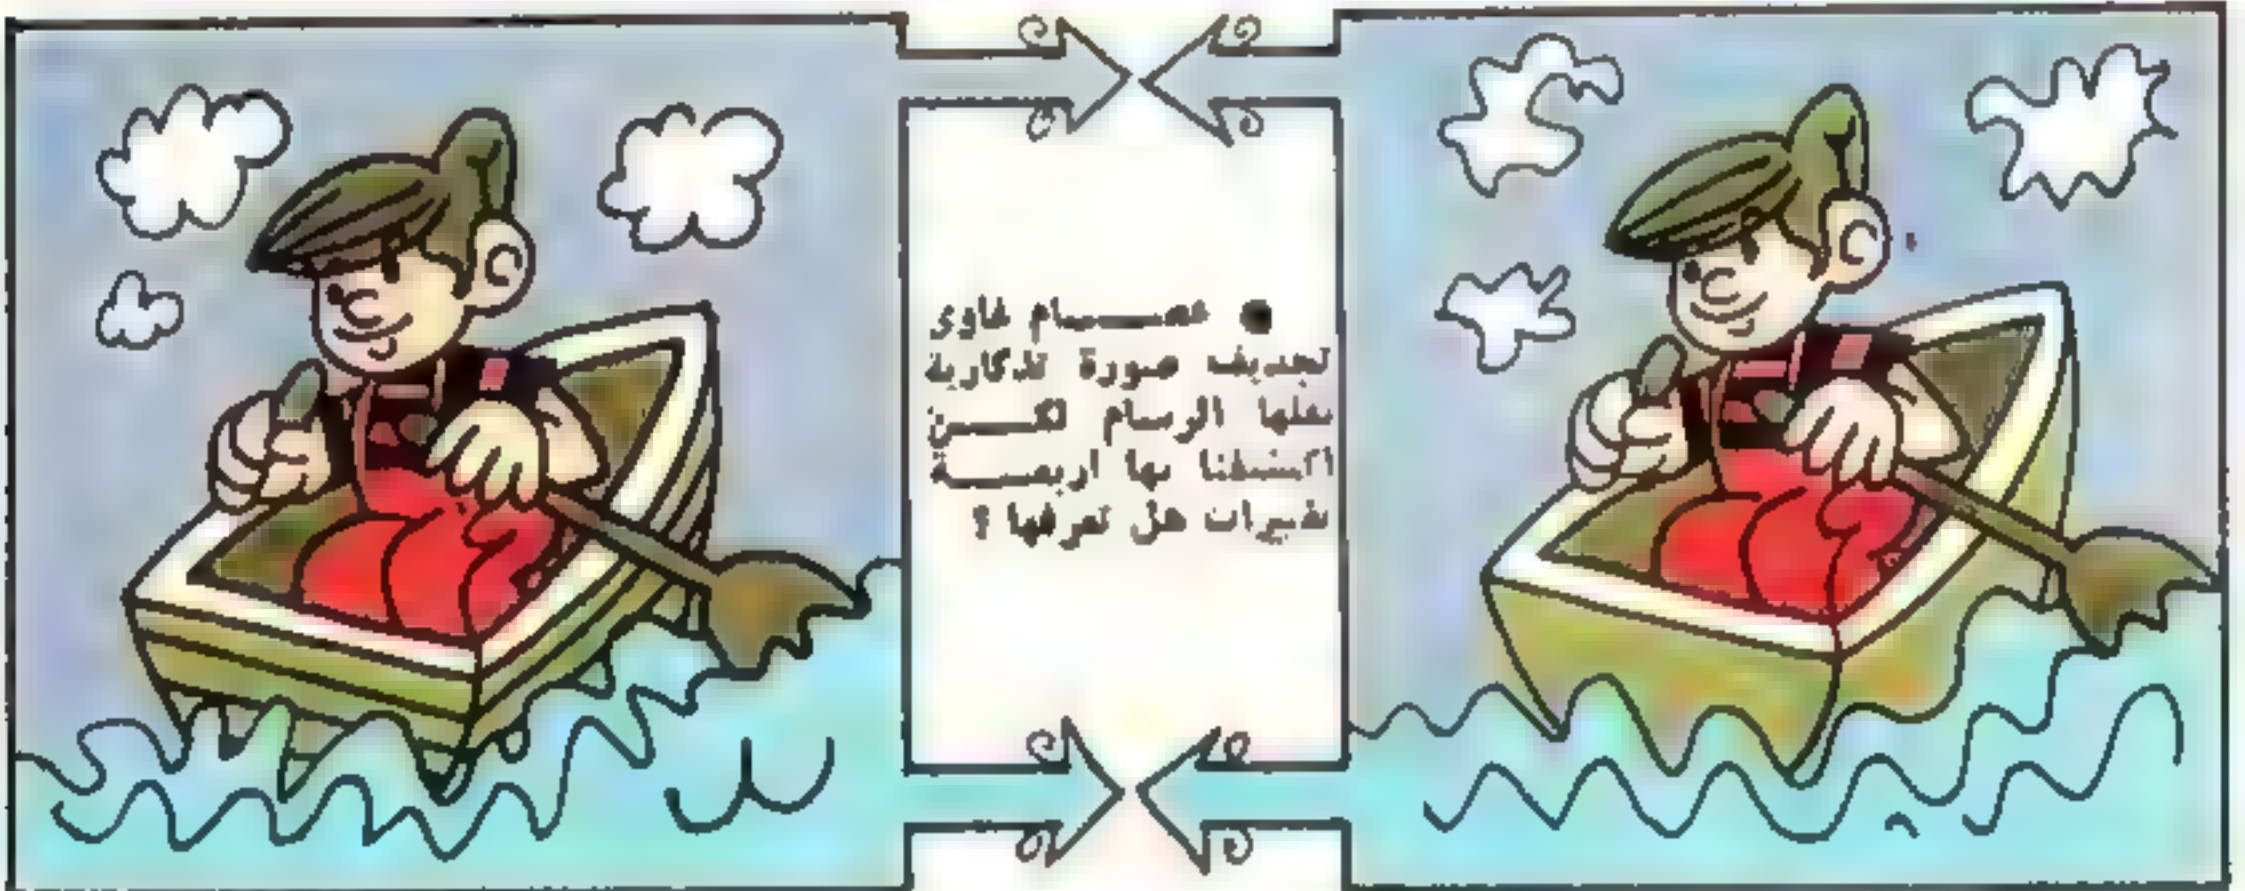 ● عصام غاوى
تجديف صورة تذكارية
نقلها الرسام لكن
اكتشفنا بها اربعة
تغييرات هل تعرفها ؟